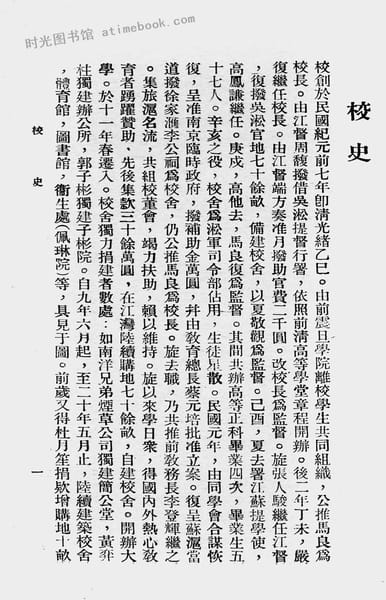 时光图书馆 atimebook.com
校史
校創於民國紀元前七年卽淸光緖乙巳。由前震旦學院離校學生共同組織，公推馬良爲
校長。由江督周馥撥借吳淞提督行署，依照前淸高等學堂章程開辦。後二年丁未，嚴
復繼任校長。由江督端方奏准月撥助官費二千圓。改校長爲監督。旋張人駿繼任江督
，復撥吳淞官地七十餘畝，備建校舍，以夏敬觀爲監督。己酉，夏去署江蘇提學使，
高鳳謙繼任。庚戌，高他去，馬良復爲監督。其間共辦高等正科畢業四次，畢業生五
十七人。辛亥之役，校舍爲淞軍司令部佔用，生徒星散。民國元年，由同學會合謀恢
復，呈准南京臨時政府，撥補助金萬圓，幷由敎育總長蔡元培批准立案。復呈蘇滬當
道撥徐家滙李公祠爲校舍，仍公推馬良爲校長。旋去職，乃共推前敎務長李登輝繼之
。集旅滬名流，共組校董會，竭力扶助，賴以維持。旋以來學日衆，得國內外熱心敎
育者踴躍贊助，先後集欵三十餘萬圓，在江灣陸續購地七十餘畝，自建校舍。開辦大
學。於十一年春遷入。校舍獨力捐建者數處：如南洋兄弟煙草公司獨建簡公堂，黃弈
柱獨建辦公所，郭子彬獨建子彬院。自九年六月起，至二十年五月止，陸續建築校舍
，體育館，圖書館，衞生處(佩琳院)等，具見于圖。前歲又得杜月笙捐欵增購地十畝
校史
一